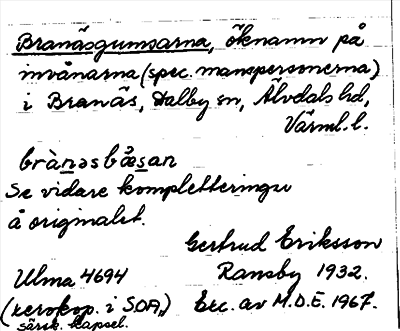 Branäsgumsarna, öknamn på
invånarna (spec. manspersonerna)
i Branäs, Dalby sn, Älvdals hd,
Värml. l.
brànəsbǽsan
Se vidare kompletteringar
å originalet.
Gertrud Eriksson
Ulma 4694 Ransby 1932.
(xerokop. i SOA,) Exc. av M.D.E. 1967.
särsk. kapsel.